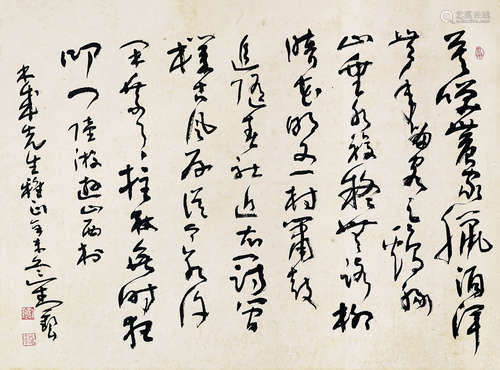 莫笑農家臘酒渾
豐年留客足雞豚
山重水複疑無路柳
暗花明又一村簫鼓
追隨春社近衣冠簡
樸古風存從今若許
閑乘月拄杖無時夜
叩門 陸游遊山西村
成先生雅正辛未冬